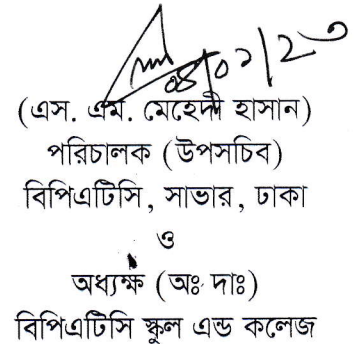 (এস. এম. মেহেদী হাসান)
পরিচালক (উপসচিব)
বিপিএটিসি, সাভার, ঢাকা
ও
অধ্যক্ষ (অঃ দাঃ)
বিপিএটিসি স্কুল এন্ড কলেজ